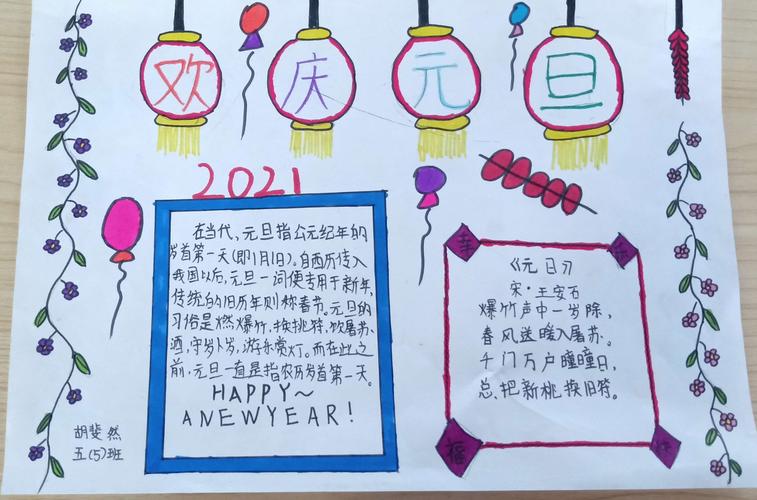 欢庆元旦
2021
在当代,元旦指公元纪年的
岁首第一天(即1月1日)。自西历传入
我国以后,元旦一词便专用于新年,
传统的旧历年则称春节。元旦的
习俗是燃爆竹,换挑符,饮屠苏
酒,守岁卜岁,游乐赏灯。而在此之
前,元旦一直是指农历岁首第一天。
HAPPY~
A NEW YEAR!
胡斐然
五(5)班
幸 乐
《元日》
宋·王安石
爆竹声中一岁除,
春风送暖入屠苏。
千门万户曈曈日,
总把新桃换旧符。
福 快